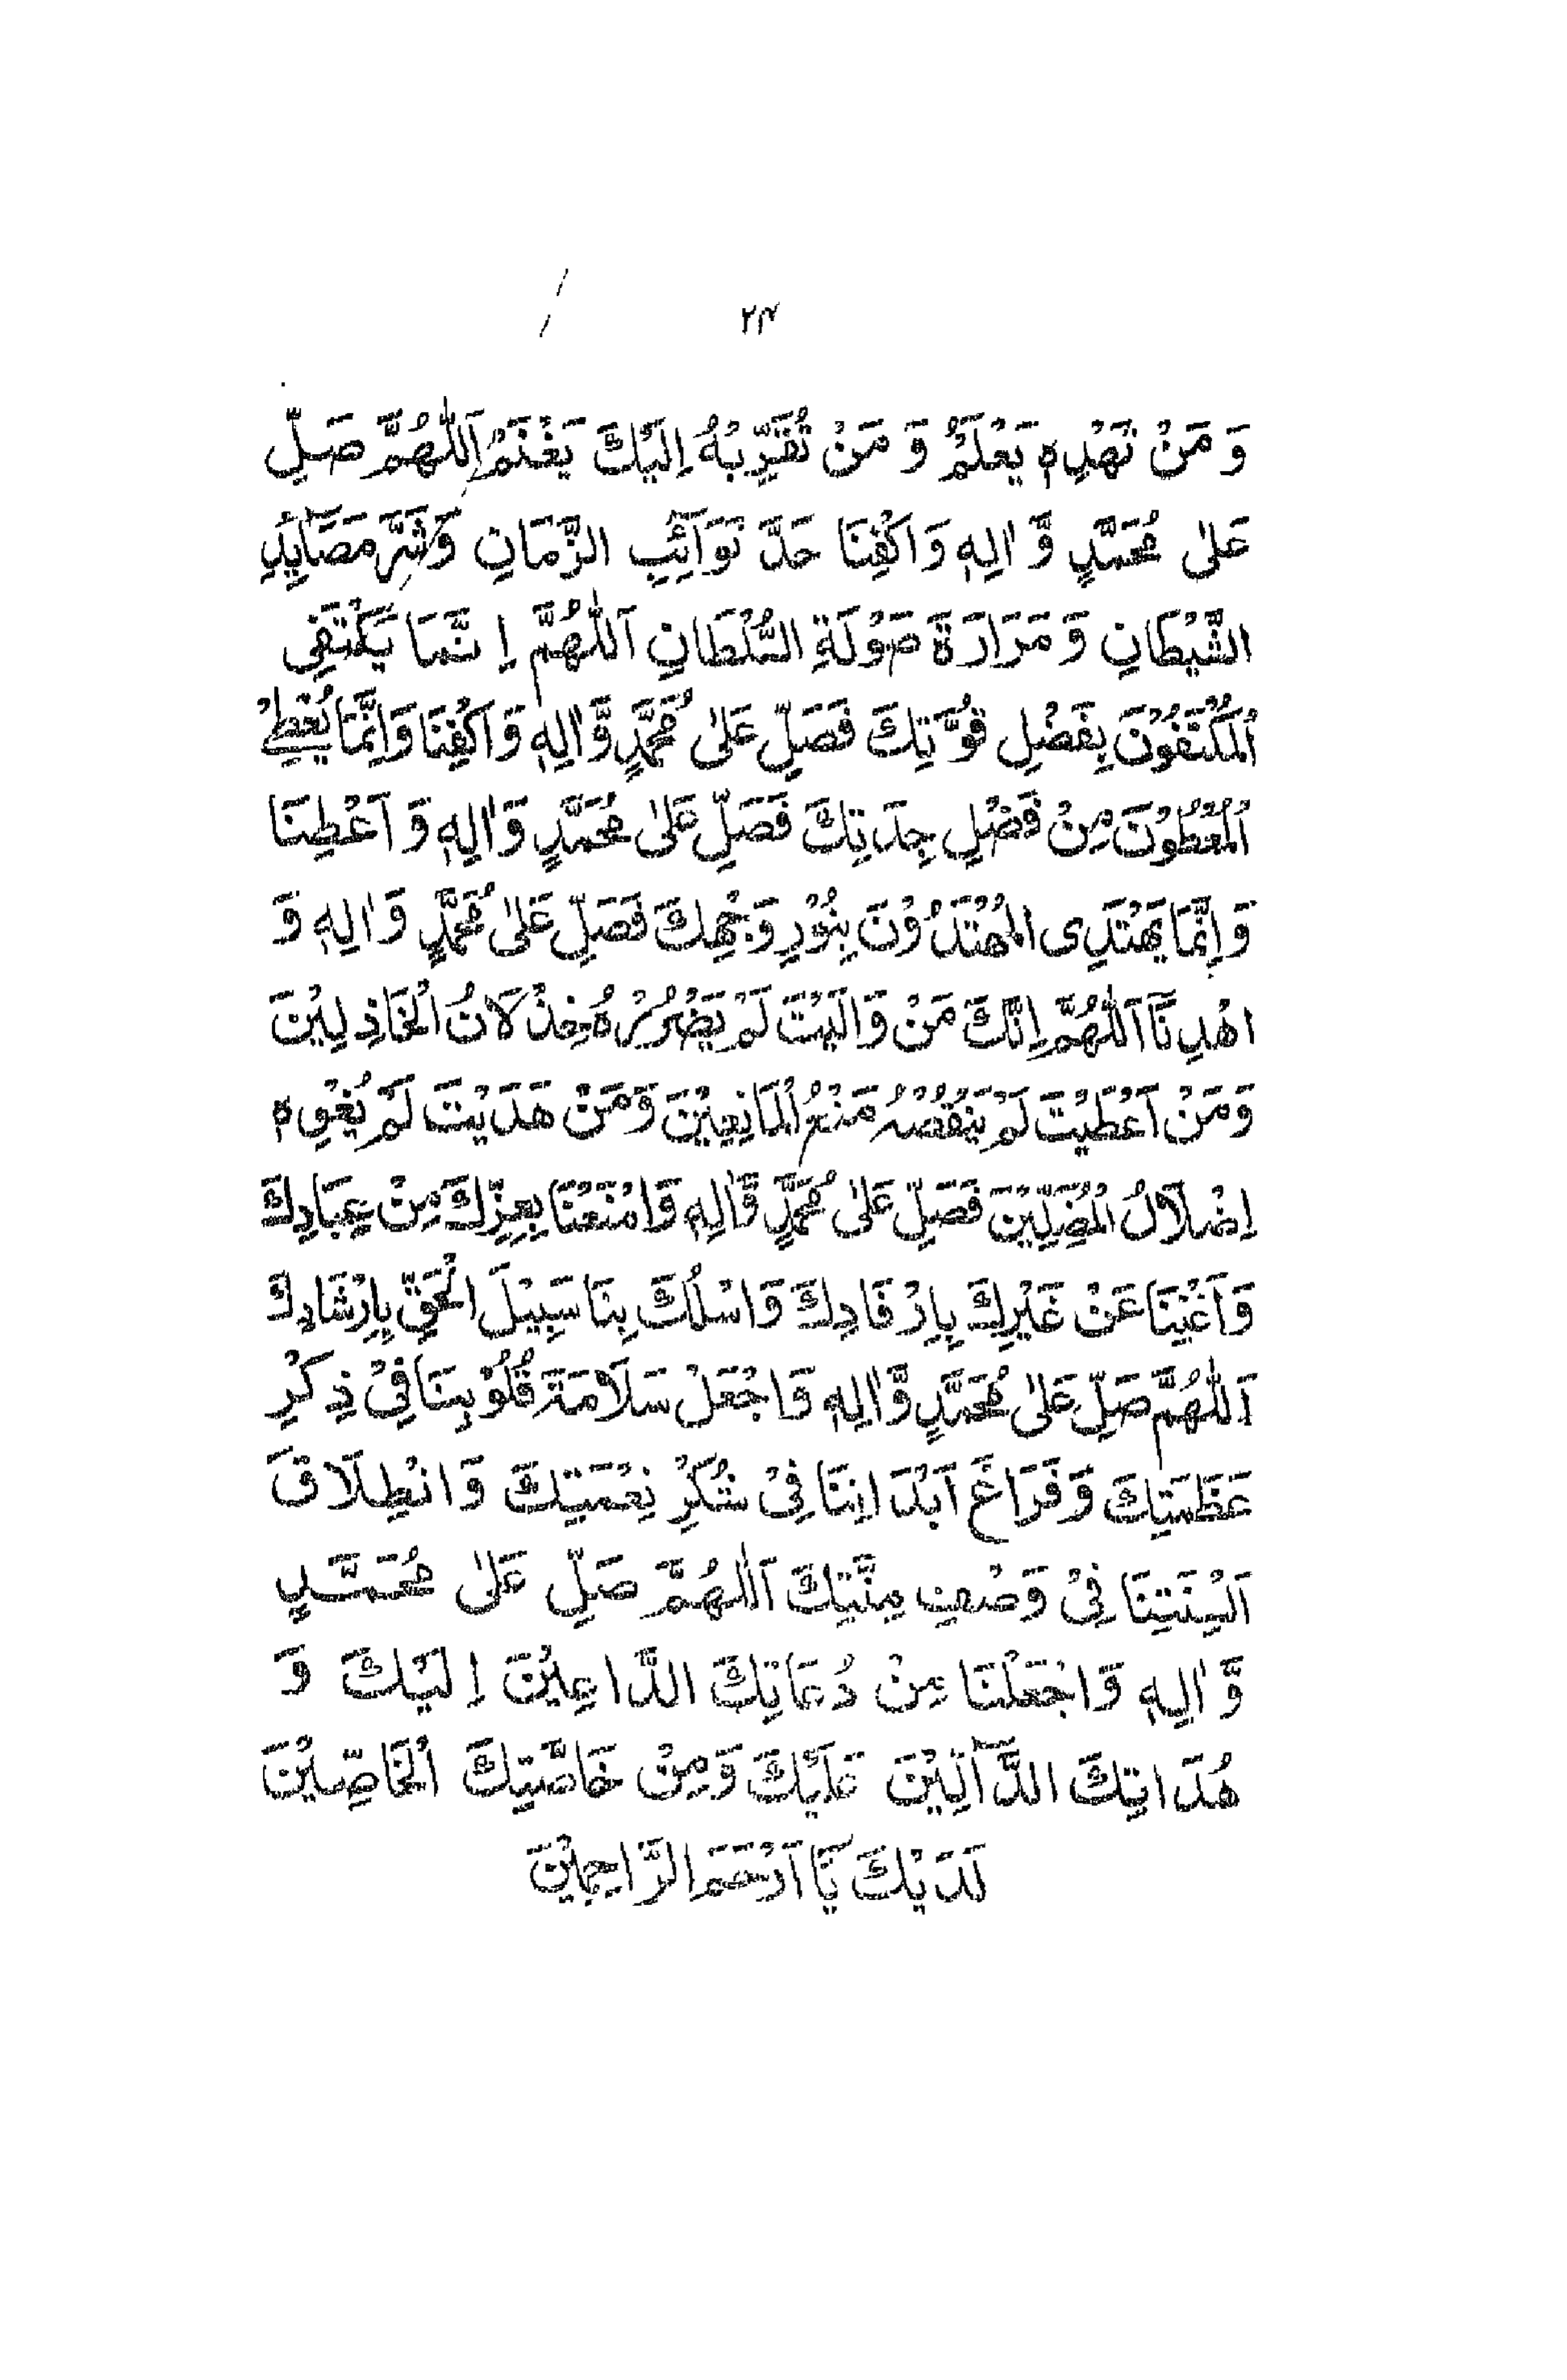 ۲۴
وَ مَنْ تَهْدِهٖ يَعْلَمُ وَ مَنْ تُقَرِّبْهُ اِلَيْكَ يَغْنَمُ اَللّٰهُمَّ صَلِّ
عَلٰى مُحَمَّدٍ وَّ اٰلِهٖ وَ اكْفِنَا حَدَّ نَوَآئِبِ الزَّمَانِ وَ شَرَّ مَصَآئِدِ
الشَّيْطَانِ وَ مَرَارَةَ صَوْلَةِ السُّلْطَانِ اَللّٰهُمَّ اِنَّمَا يَكْتَفِى
الْمُكْتَفُوْنَ بِفَضْلِ قُوَّتِكَ فَصَلِّ عَلٰى مُحَمَّدٍ وَّ اٰلِهٖ وَ اكْفِنَا وَ اِنَّمَا يُعْطِے
الْمُعْطُوْنَ مِنْ فَضْلِ جِدَتِكَ فَصَلِّ عَلٰى مُحَمَّدٍ وَ اٰلِهٖ وَ اَعْطِنَا
وَ اِنَّمَا يَهْتَدِى الْمُهْتَدُوْنَ بِنُوْرِ وَجْهِكَ فَصَلِّ عَلٰى مُحَمَّدٍ وَ اٰلِهٖ وَ
اهْدِنَا اَللّٰهُمَّ اِنَّكَ مَنْ وَالَيْتَ لَمْ يَضْرُرْهُ خِذْلَانُ الْخَاذِلِيْنَ
وَ مَنْ اَعْطَيْتَ لَمْ يَنْقُصْهُ مَنْعُ الْمَانِعِيْنَ وَ مَنْ هَدَيْتَ لَمْ يُغْوِهٖ
اِضْلَالُ الْمُضِلِّيْنَ فَصَلِّ عَلٰى مُحَمَّدٍ وَّ اٰلِهٖ وَ امْنَعْنَا بِعِزِّكَ مِنْ عِبَادِكَ
وَ اَغْنِنَا عَنْ غَيْرِكَ بِاِرْفَادِكَ وَ اسْلُكْ بِنَا سَبِيْلَ الْحَقِّ بِاِرْشَادِكَ
اَللّٰهُمَّ صَلِّ عَلٰى مُحَمَّدٍ وَّ اٰلِهٖ وَ اجْعَلْ سَلَامَةَ قُلُوْبِنَا فِىْ ذِكْرِ
عَظَمَتِكَ وَ فَرَاغَ اَبْدَانِنَا فِىْ شُكْرِ نِعْمَتِكَ وَ انْطِلَاقَ
اَلْسِنَتِنَا فِىْ وَصْفِ مِنَّتِكَ اَللّٰهُمَّ صَلِّ عَلٰى مُحَمَّدٍ
وَّ اٰلِهٖ وَ اجْعَلْنَا مِنْ دُعَاتِكَ الدَّاعِيْنَ اِلَيْكَ وَ
هُدَاتِكَ الدَّآلِّيْنَ عَلَيْكَ وَ مِنْ خَاصَّتِكَ الْخَاصِّيْنَ
لَدَيْكَ يَا اَرْحَمَ الرَّاحِمِيْنَ